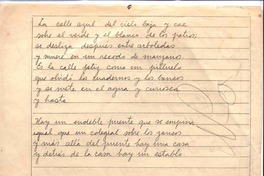 6
La calle azul del cielo baja y cae
sobre el verde y el blanco de los patios;
se desliza después entre arboledas
y muere en un recodo de manzanos
Es la calle feliz como un pilluelo
que olvidó los cuadernos y los bancos
y se mete en el agua y curiosea
y hasta
Hay un endeble puente que se empina
igual que un colegial sobre los zancos
y más allá del puente hay una casa
y detrás de la casa hay un establo